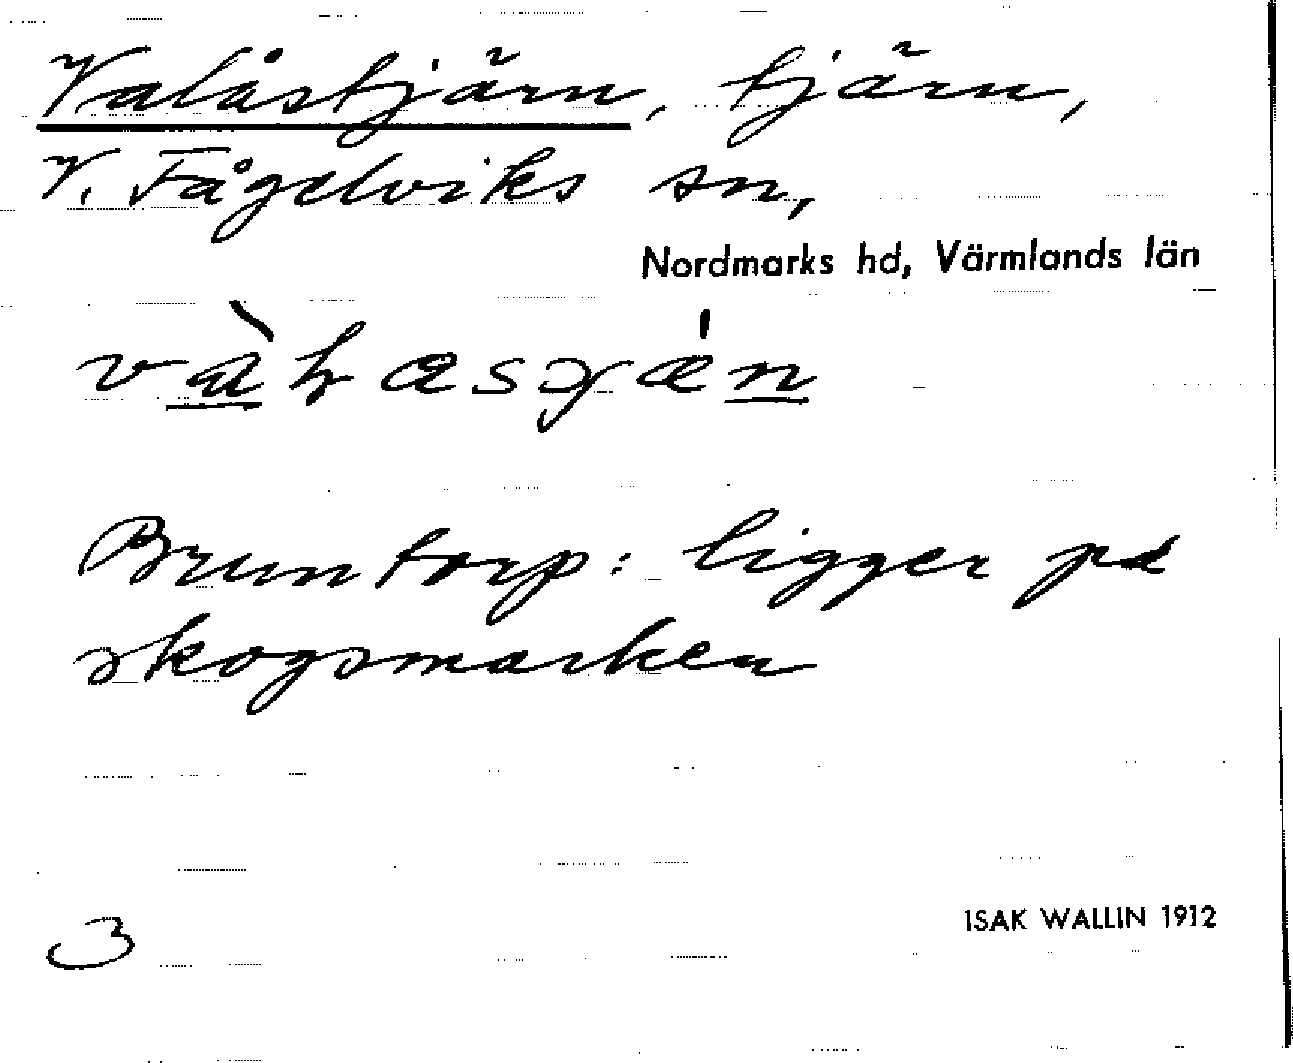 Valåstjärn, tjärn,
V. Fågelviks sn,
Nordmarks hd, Värmlands län
Bruntorp: ligger på
skogsmarken
3
ISAK WALLIN 1912